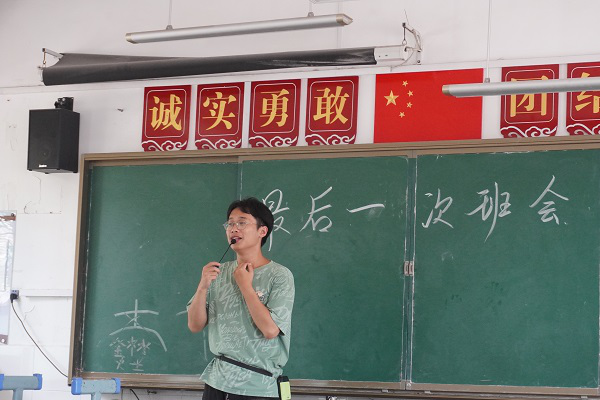 诚实勇敢 团结
最后一次班会